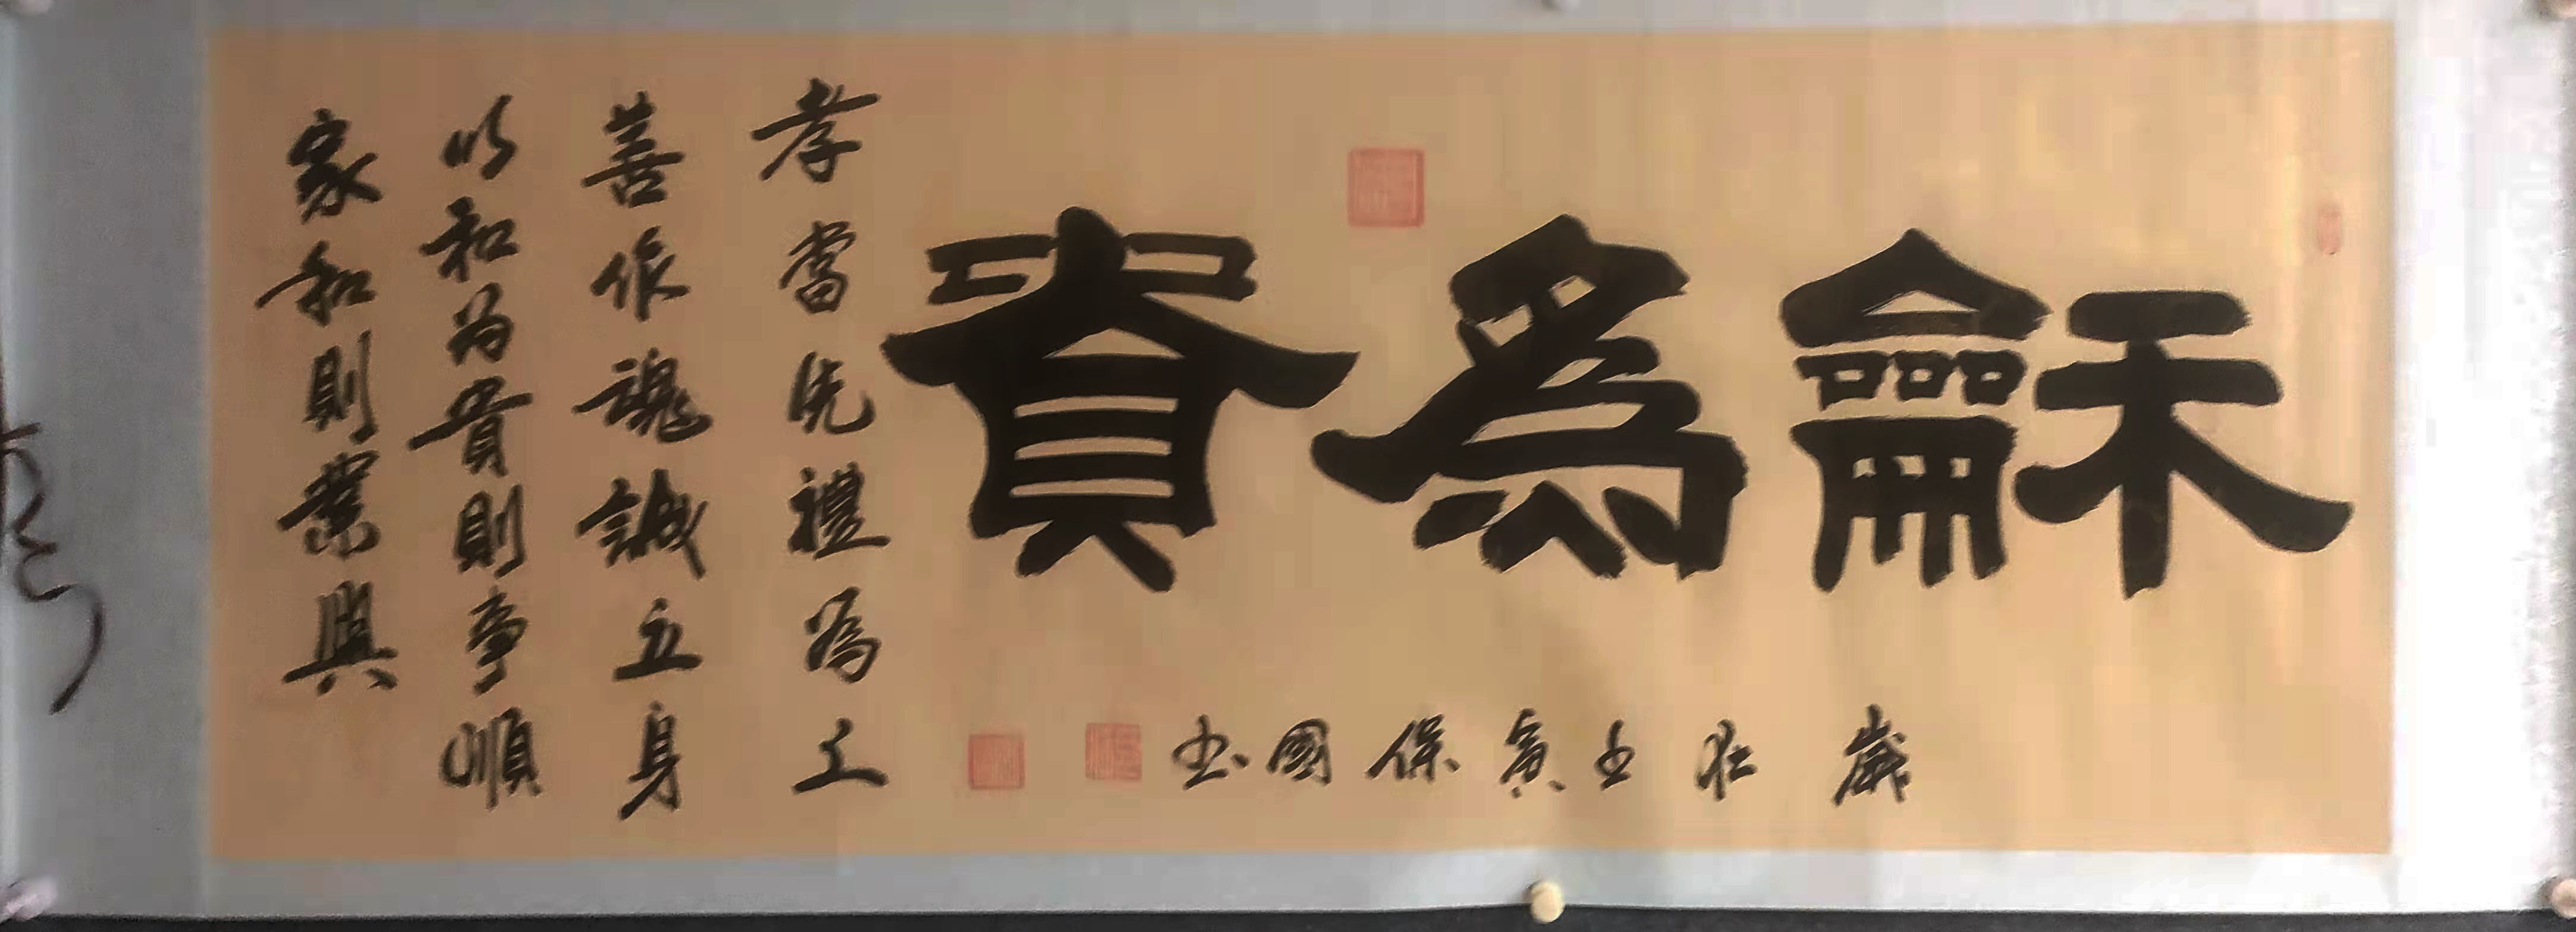 龢為貴
歲在壬寅保國書
孝當先禮為上
善作魂誠立身
以和为貴則事順
家和則業興